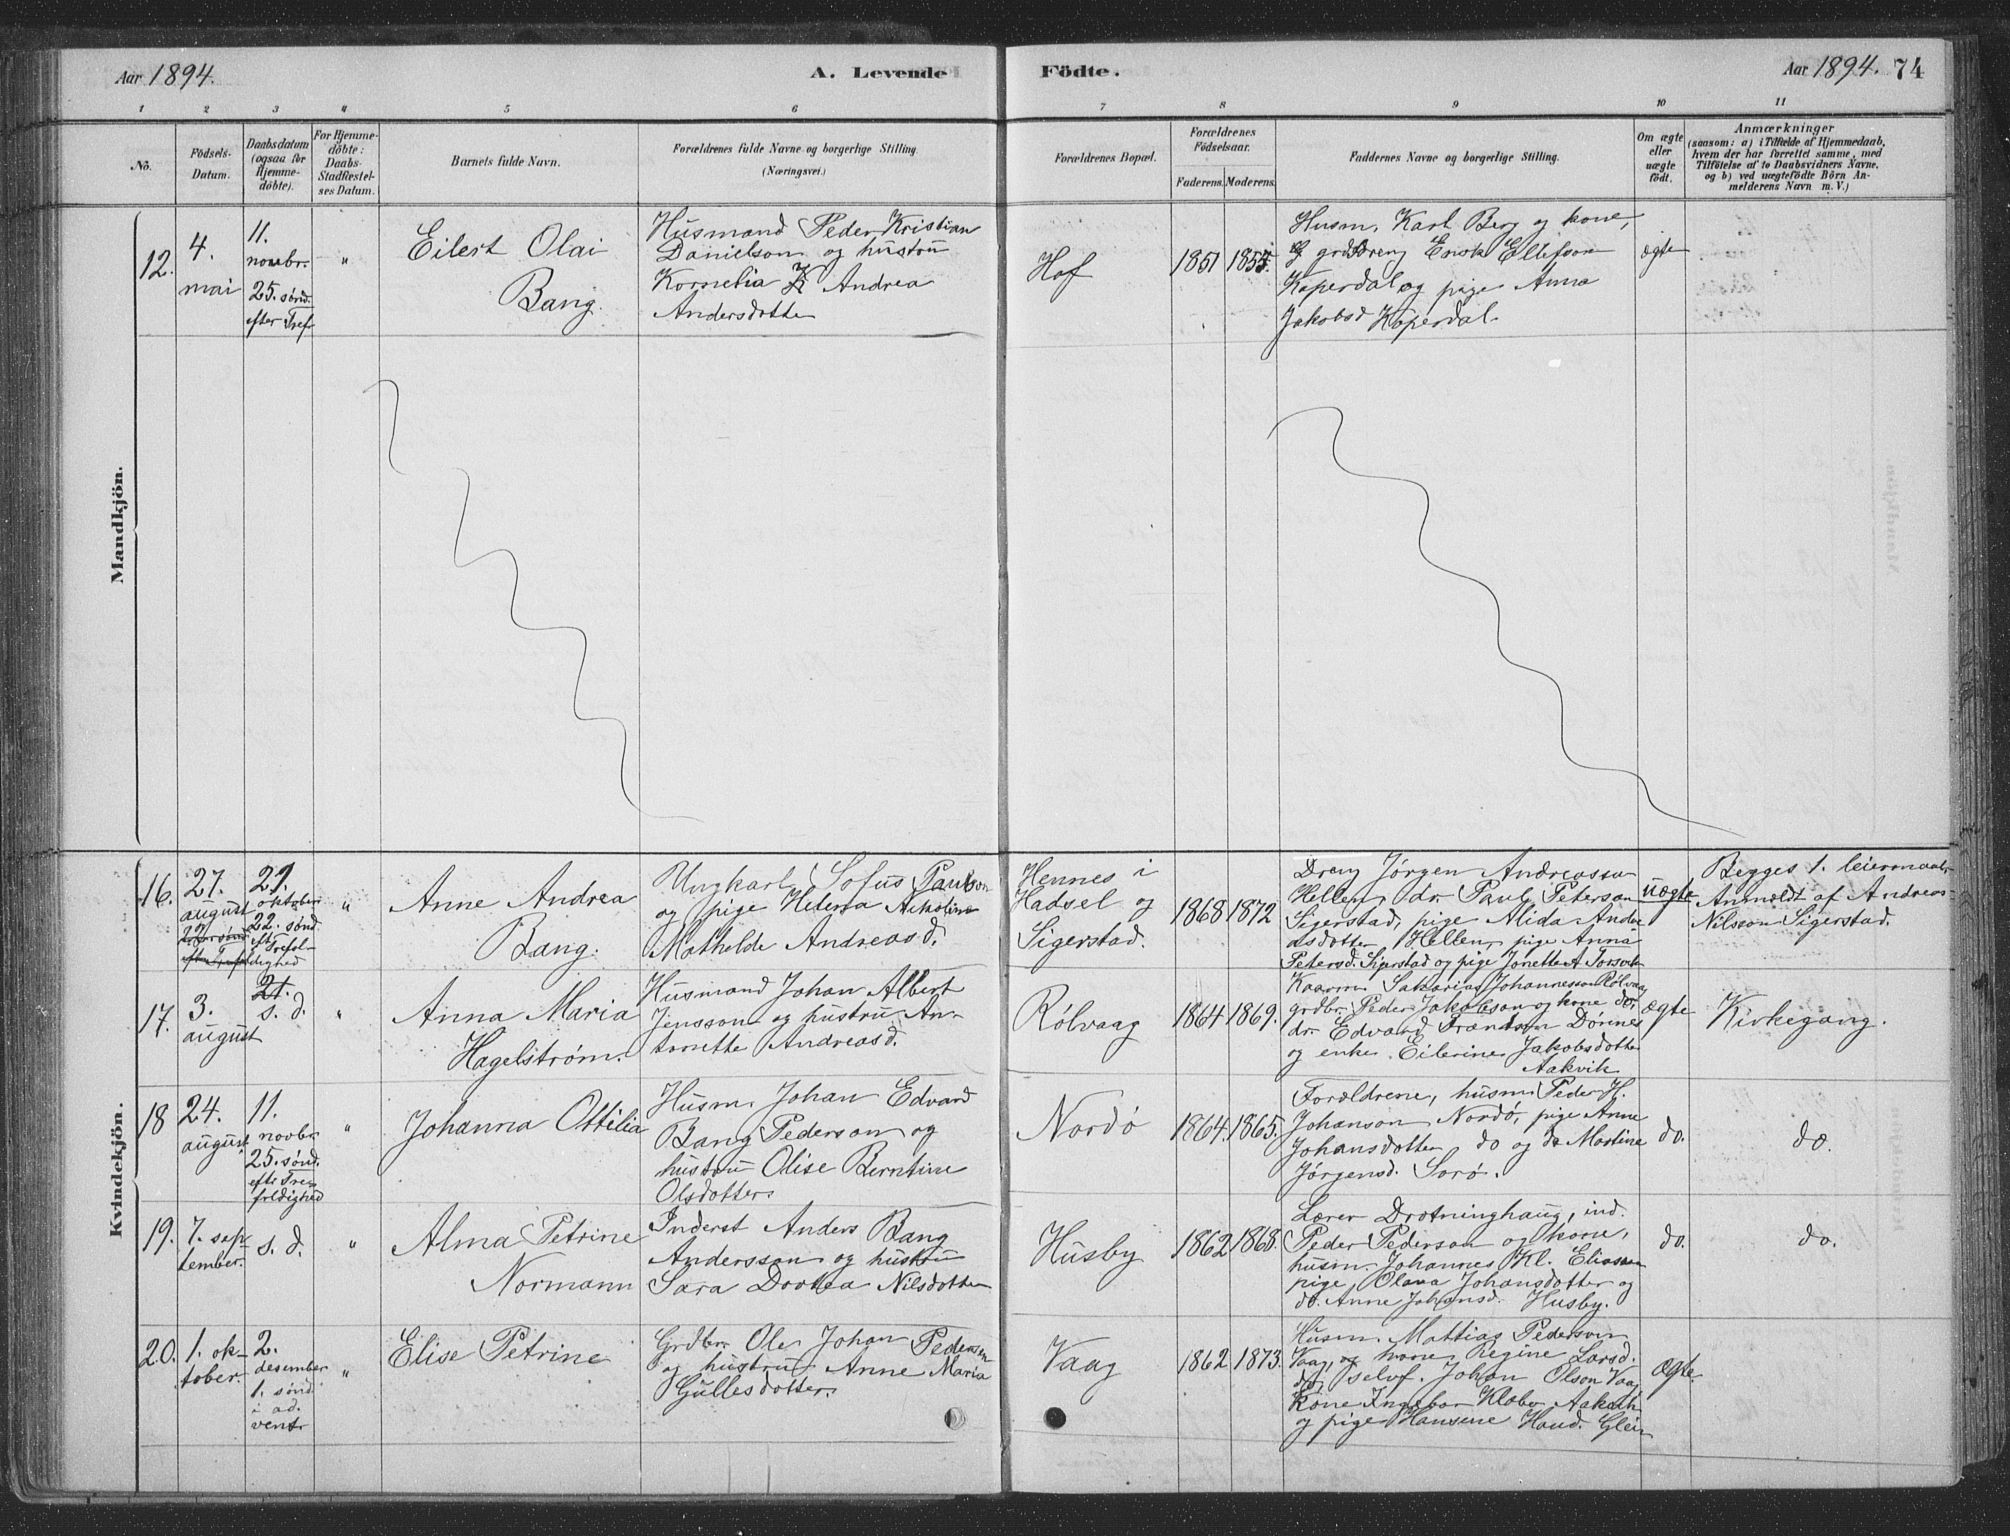 Aar 1894.
A. Levende
Födte.
Aar 1894. 74
1 2 3 4 5 6 7 8 9 10 11
No.
Födsels-
Datum.
Daabsdatum
(ogsaa for
Hjemme-
döbte).
For Hjemme-
döbte:
Daabs-
Stadfæstel-
ses Datum.
Barnets fulde Navn.
Forældrenes fulde Navne og borgerlige Stilling.
(Næringsvei.)
Forældrenes Bopæl.
Forældrenes
Födselsaar.
Faderens. Moderens.
Faddernes Navne og borgerlige Stilling.
Om ægte
eller
uægte
födt.
Anmærkninger
(saasom: a) i Tilfælde af Hjemmedaab,
hvem der har forrettet samme, med
Tilföielse af to Daabsvidners Navne,
og b) ved uægtefödte Börn An-
melderens Navn m. V.)
Mandkjön.
12.
4.
mai
11.
novbr.
25. sønd.
efter Tref.
"
Eilert Olai
Bang
Husmand Peder Kristian
Danielson og hustru
Kornelia Andrea
Andersdotter
Hof
1851
1855.
Husm. Karl Berg og kone,
grdrdreng Enok Ellefson
Koperdal og pige Anna
Jakobsd Koperdal.
ægte
Kvindekjön.
16.
27.
august
21.
oktober
22. sønd.
eft Trefol-
dighed
"
Anne Andrea
Bang.
Ungkarl Sofus Paulson
og pige Helena Nikoline
Mathilde Andreasd.
Hennes i
Hadsel og
Sigerstad.
1868
1872
Dreng Jørgen Andreasson
Hellen, do. Paul Peterson
Sigerstad, pige Alida Andre
asdotter Hellen, pige Anna
Petersd. Sigerstad og pige Jonette A Torsvik
uægte
Begges 1. leiermaal.
Anmeldt af Andreas
Nilsson Sigerstad.
17.
3.
august
21.
s. d.
"
Anna Maria
Hagelstrøm.
Husmand Johan Albert
Jensson og hustru An-
tonette Andreasd.
Rølvaag
1864
1869.
Kaarm. Sakarias Johannesson Rølvaag
grdbr. Peder Jakobson og kone do,
do. Edvard Frantson Dønnes
og enke Eilerine Jakobsdotter
Aakvik
ægte
Kirkegang.
18
24.
august
11.
novbr.
25. sønd.
eft Tre-
foldighed
"
Johanna Ottilia
Husm. Johan Edvard
Bang Pederson og
hustru Olise Berntine
Olsdotter
Nordø
1864.
1865.
Forældrene, husm Peder H.
Johanson Nordø, pige Anne
Johansdotter do og do Martine
Jørgensd. Sorø.
do.
do.
19.
7. sep-
tember.
s. d.
"
Alma Petrine
Normann
Inderst Anders Bang
Andersson og hustru
Sara Dortea Nilsdotter
Husby
1862
1868.
Lærer Drotninghaug, ind.
Peder Pederson og kone,
husm. Johannes Kl. Eliassen
pige Olava Johansdotter og
do. Anne Johansd. Husby.
do.
do.
20.
1. ok-
tober.
2.
desember
1. sønd.
i ad-
vent.
"
Elise Petrine
Grdbr. Ole Johan Pedersen
og hustru Anne Maria
Gullesdotter.
Vaag
1862
1873.
Husm. Mattias Pederson
Vaag, og kone Regine Larsd.
do, selvf. Johan Olson Vaag
Kone Ingebor Klobo Aakvik
og pige Hansine Glein
ægte.